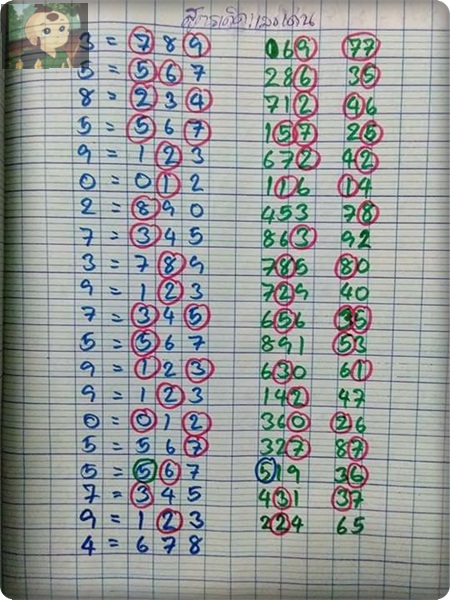 สูตรเด็ด!เลขเด่น
3 = 7 8 9 069 77
5 = 5 6 7 286 35
8 = 2 3 4 712 46
5 = 5 6 7 157 25
9 = 1 2 3 672 42
0 = 0 1 2 116 14
2 = 8 9 0 453 78
7 = 3 4 5 863 92
3 = 7 8 9 785 80
9 = 1 2 3 729 40
7 = 3 4 5 656 35
5 = 5 6 7 891 53
9 = 1 2 3 630 61
9 = 1 2 3 142 47
0 = 0 1 2 360 26
5 = 5 6 7 327 87
5 = 5 6 7 519 36
7 = 3 4 5 431 37
9 = 1 2 3 224 65
4 = 6 7 8